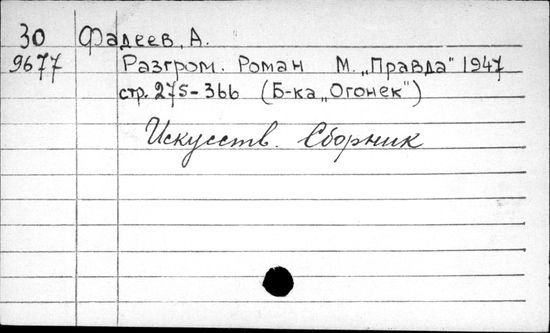 30 Фадеев, А.
9677 Разгром. Роман М. „Правда" 1947
стр. 275-366 (Б-ка „Огонек")
Искусств. Сборник